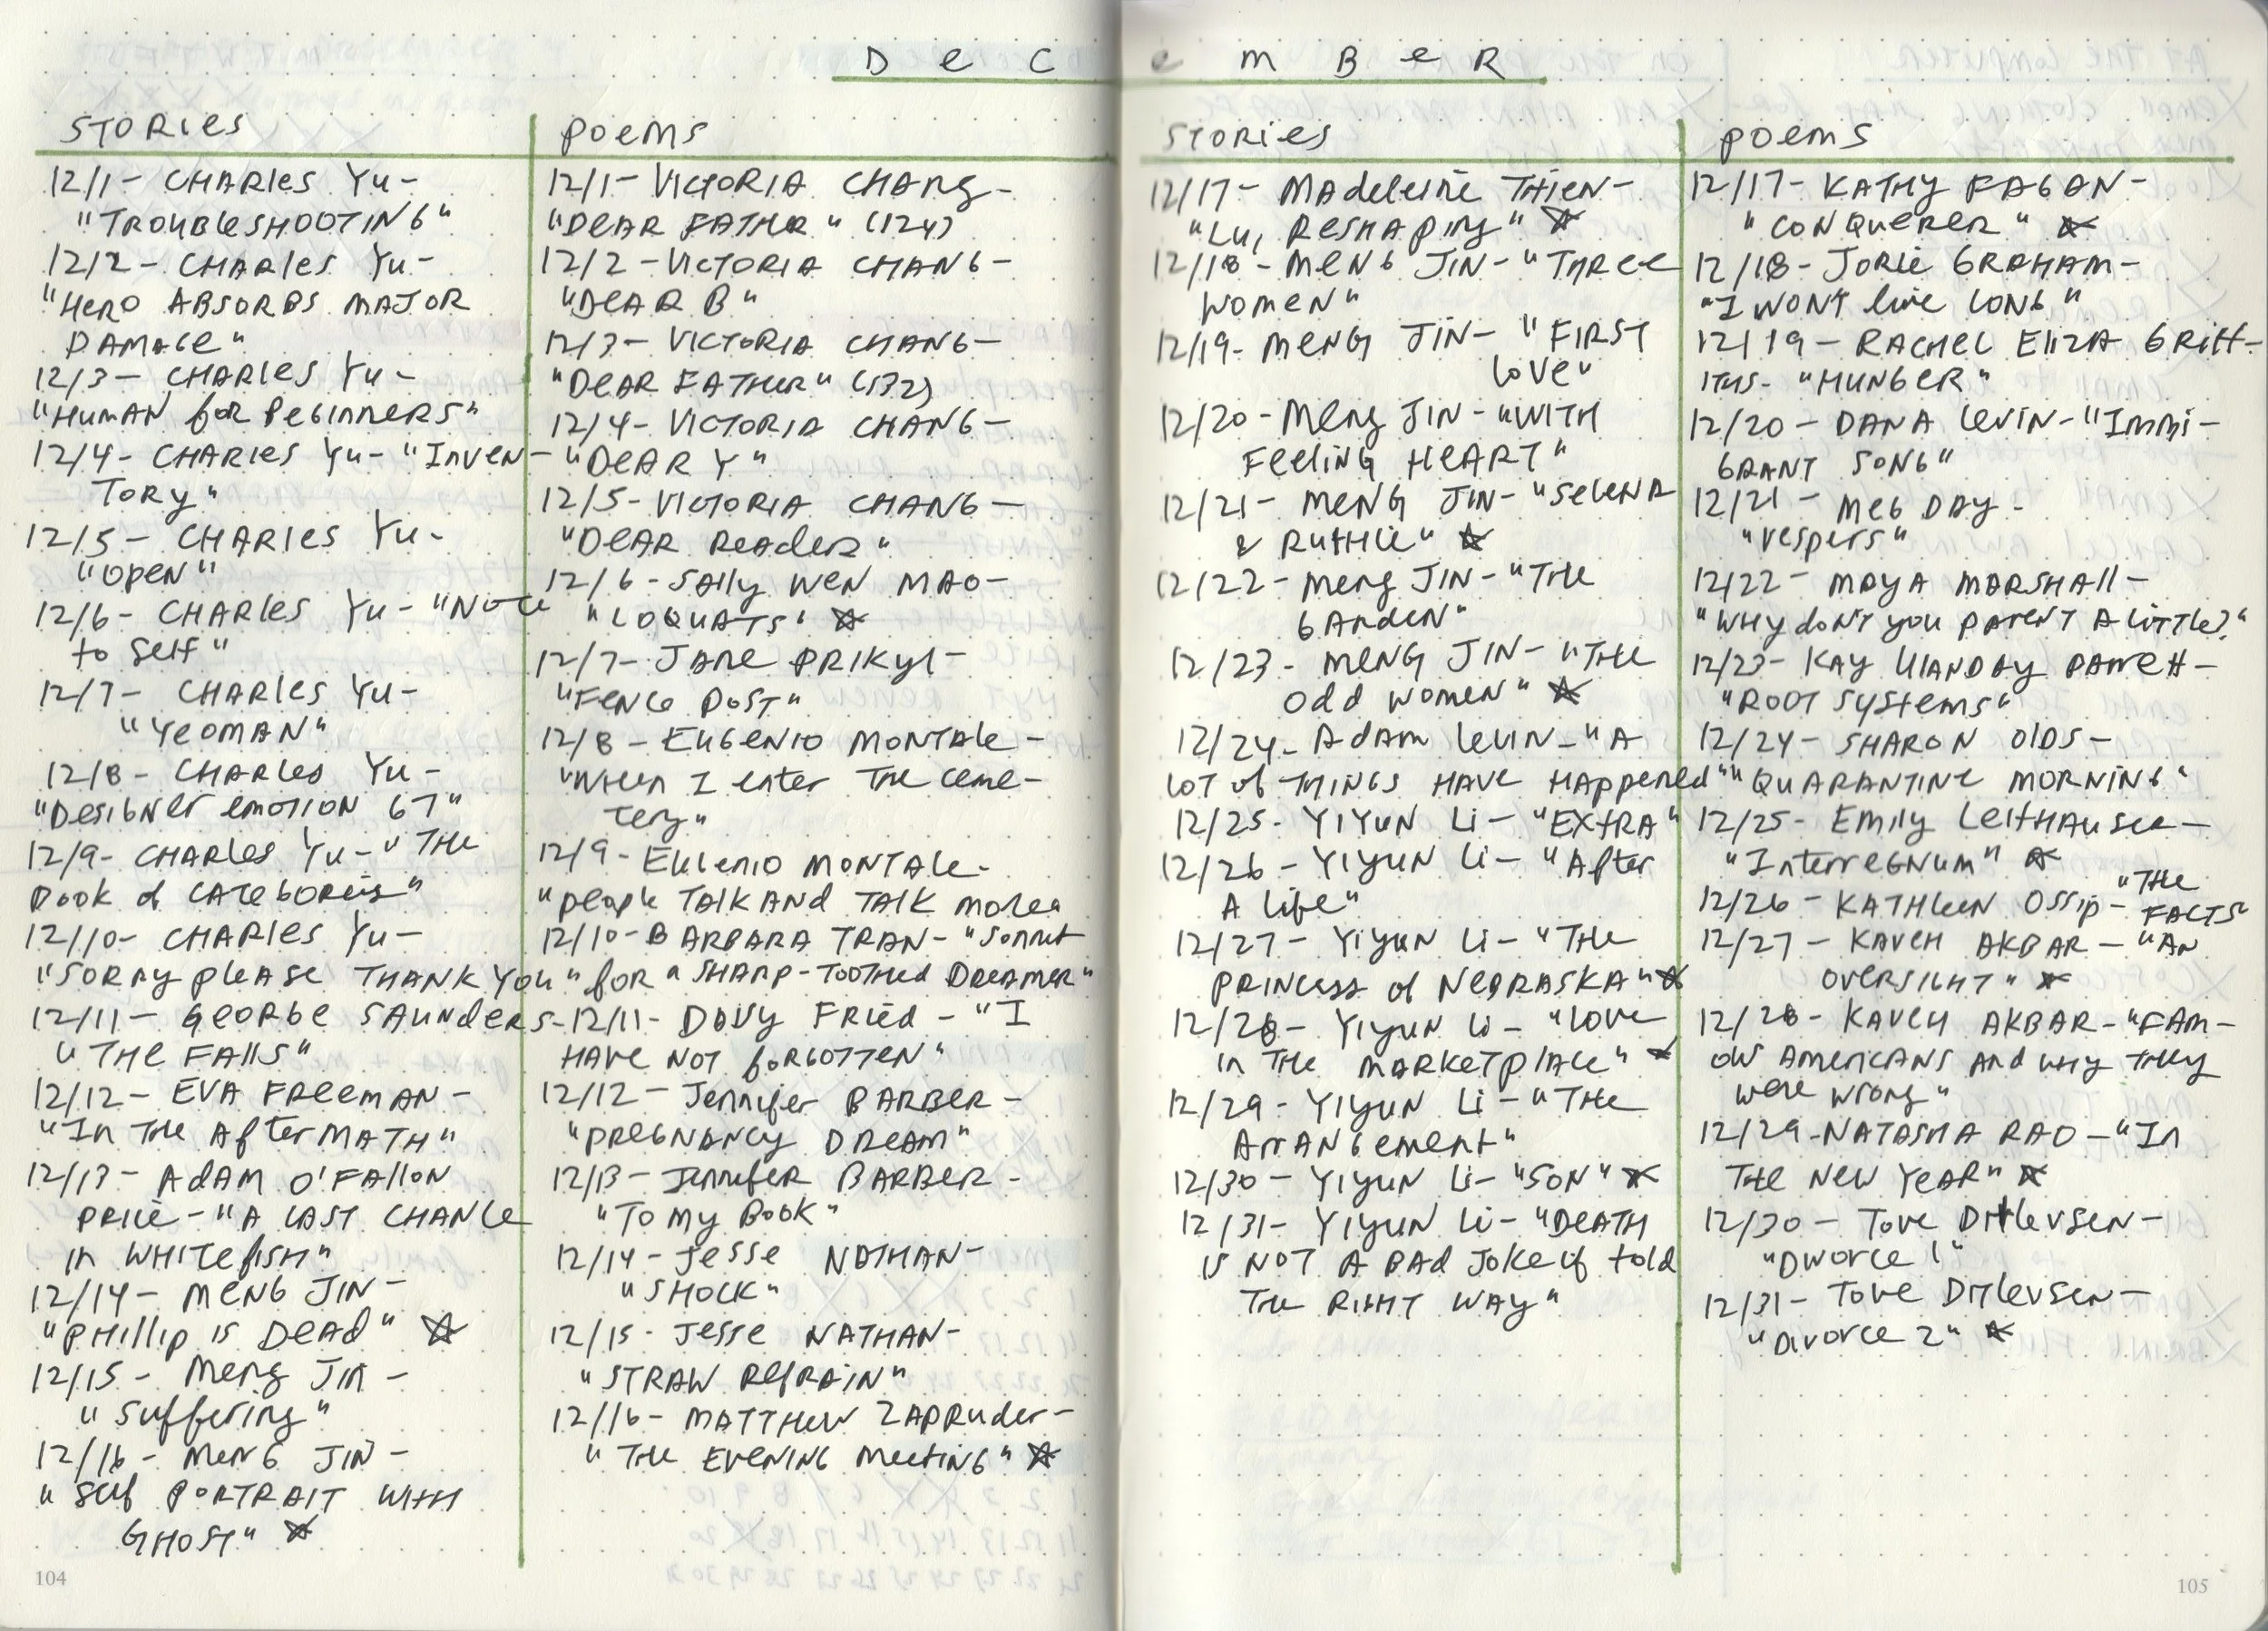 DECEMBER
STORIES
12/1- CHARLES YU-
"TROUBLESHOOTING"
12/2- CHARLES YU-
"HERO ABSORBS MAJOR
DAMAGE"
12/3- CHARLES YU-
"HUMAN for BEGINNERS"
12/4- CHARLES YU- "INVEN-
TORY"
12/5- CHARLES YU-
"OPEN"
12/6- CHARLES YU- "NOTE
to Self"
12/7- CHARLES YU-
"YEOMAN"
12/8- CHARLES YU-
"DESIGNER EMOTION 67"
12/9- CHARLES YU- "THE
BOOK of CATEGORIES"
12/10- CHARLES YU-
"SORRY PLEASE THANK YOU"
12/11- GEORGE SAUNDERS-
"THE FALLS"
12/12- EVA FREEMAN-
"IN THE AFTERMATH"
12/13- ADAM O'FALLON
PRICE- "A LAST CHANCE
IN WHITEFISH"
12/14- MENG JIN-
"PHILLIP IS DEAD" ☆
12/15- MENG JIN-
"Suffering"
12/16- MENG JIN-
"SELF PORTRAIT WITH
GHOST" ☆
104
POEMS
12/1- VICTORIA CHANG-
"DEAR FATHER" (124)
12/2- VICTORIA CHANG-
"DEAR B"
12/3- VICTORIA CHANG-
"DEAR FATHER" (532)
12/4- VICTORIA CHANG-
"DEAR Y"
12/5- VICTORIA CHANG-
"DEAR READER"
12/6- SALLY WEN MAO-
"LOQUATS" ☆
12/7- JANE PRIKYL-
"FENCE POST"
12/8- EUGENIO MONTALE-
"WHEN I enter THE CEME-
TERY"
12/9- EUGENIO MONTALE-
"PEOPLE TALK AND TALK
12/10- BARBARA TRAN- "SONNET
for a SHARP-TOOTHED DREAMER"
12/11- DAVY FRIED- "I
HAVE NOT FORGOTTEN"
12/12- Jennifer BARBER-
"PREGNANCY DREAM"
12/13- Jennifer BARBER-
"TO MY BOOK"
12/14- Jesse NATHAN-
"SHOCK"
12/15- Jesse NATHAN-
"STRAW REFRAIN"
12/16- MATTHEW ZAPRUDER-
"THE EVENING MEETING" ☆
STORIES
12/17- MADELEINE THIEN-
"LU, RESHAPING" ☆
12/18- MENG JIN- "THREE
WOMEN"
12/19- MENG JIN- "FIRST
LOVE"
12/20- MENG JIN- "WITH
FEELING HEART"
12/21- MENG JIN- "SELENA
& RUTHIE" ☆
12/22- MENG JIN- "THE
GARDEN"
12/23- MENG JIN- "THE
ODD WOMEN" ☆
12/24- ADAM LEVIN- "A
LOT of THINGS HAVE HAPPENED"
12/25- YIYUN LI- "EXTRA"
12/26- YIYUN LI- "After
A Life"
12/27- YIYUN LI- "THE
PRINCESS of NEBRASKA" ☆
12/28- YIYUN LI- "LOVE
IN THE MARKETPLACE" ☆
12/29- YIYUN LI- "THE
ARRANGEMENT"
12/30- YIYUN LI- "SON" ☆
12/31- YIYUN LI- "DEATH
IS NOT A BAD JOKE if told
THE RIGHT WAY"
POEMS
12/17- KATHY FAGAN-
"CONQUERER" ☆
12/18- JORIE GRAHAM-
"I WON'T live LONG"
12/19- RACHEL ELIZA GRIFF-
ITHS- "HUNGER"
12/20- DANA LEVIN- "IMMI-
GRANT SONG"
12/21- MEG DAY-
"VESPERS"
12/22- MAYA MARSHALL-
"WHY don't you parent A Little?"
12/23- KAY ULANDAY BARRETT-
"ROOT SYSTEMS"
12/24- SHARON OLDS-
"QUARANTINE MORNING"
12/25- EMILY LEITHAUSER-
"INTERREGNUM" ☆
12/26- KATHLEEN OSSIP- "THE
FACTS"
12/27- KAVEH AKBAR- "AN
OVERSIGHT" ☆
12/28- KAVEH AKBAR- "FAM-
OUS AMERICANS AND WHY THEY
WERE WRONG"
12/29- NATASHA RAO- "IN
THE NEW YEAR" ☆
12/30- TOVE DITLEVSEN-
"DIVORCE 1"
12/31- TOVE DITLEVSEN-
"DIVORCE 2" ☆
105